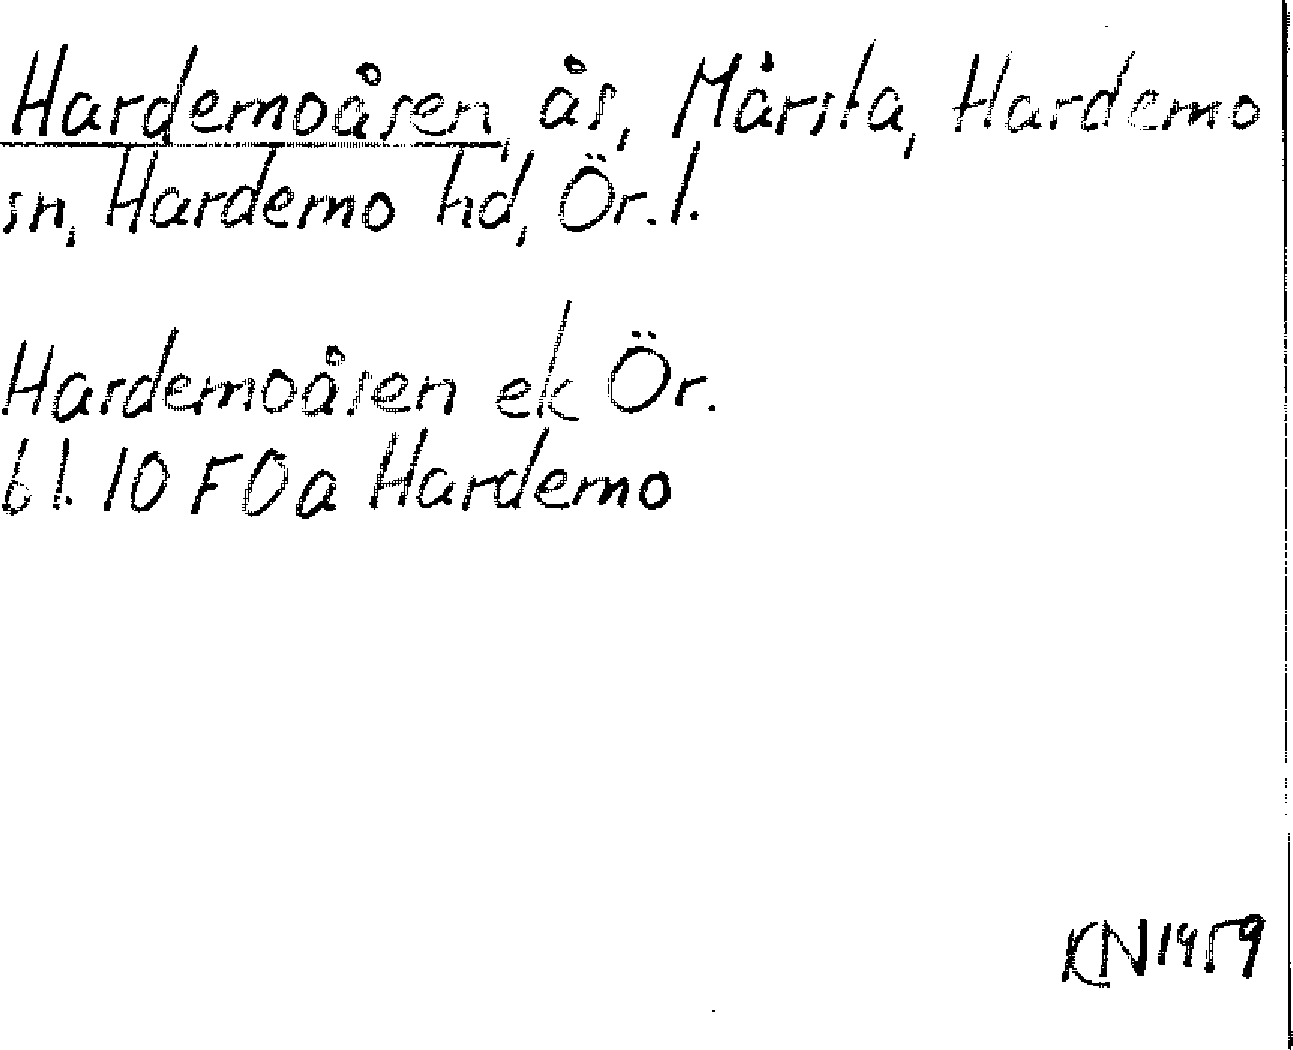 Hardemoåsen, ås, Mårsta, Hardemo
sn, Hardemo hd, Ör. l.
Hardemoåsen ek Ör.
bl. 10 F 0 a Hardemo
KN 1959